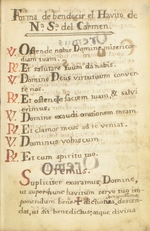 Forma de bendecir el Havito de
Nª. Sª. del Carmen.
V. Ostende nobis Domine misericor-
diam tuam.
R. Et salutare tuum da nobis.
V. Domine Deus virtutum conver-
te nos.
R. Et ostende faciem tuam, & salvi
erimus.
V. Domine exaudi orationem meam.
R. Et clamor meus ad te veniat.
V. Dominus vobiscum.
R. Et cum spiritu tuo.
Oremus.
Supliciter exoramus Domine,
ut super hunc havitum servo tuo im-
ponendum benedictio descen-
dat, ut sit benedictus, atque divina